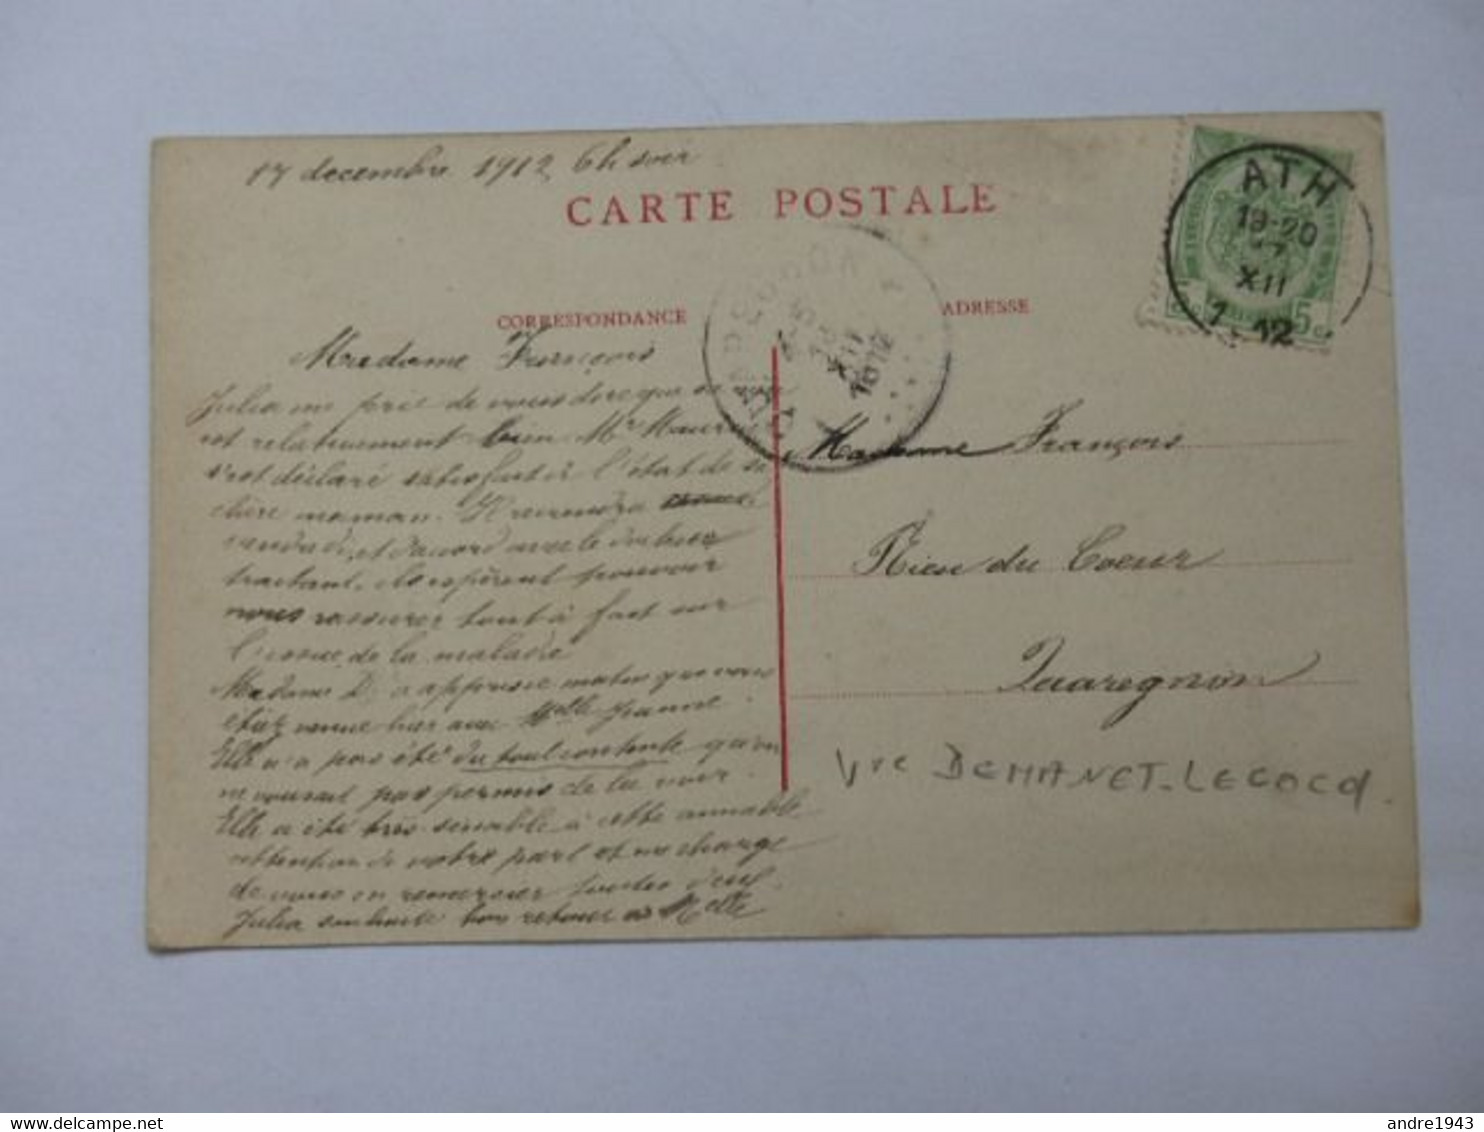 17 decembre 1912 6h soir
CARTE POSTALE
ATH
18-20
17
XII
1912
CORRESPONDANCE
ADRESSE
18
XII
1912
5c
Madame François
Julia me prie de vous dire que sa
est relativement bien Mr
s'est déclaré satisfait de l'état de sa
chère maman. Il reviendra
vendredi, et d'accord avec le docteur
traitant. Ils espèrent pouvoir
nous rassurer tout à fait sur
l'issue de la maladie
Madame D. a appris ce matin que vous
étiez venue hier avec Melle Jeanne
Elle n'a pas été du tout contente qu'on
ne vous ait pas permis de la voir.
Elle a été très sensible à cette aimable
attention de votre part et me charge
de vous en remercier
Julia souhaite bon retour à Melle
Madame François
Rieu du Coeur
Quaregnon
Vve DEMANET-LECOCQ.
delcampe.net
andre1943